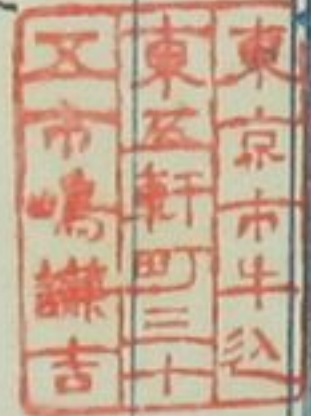 東京市牛込
東五軒町三十
五市嶋謙吉